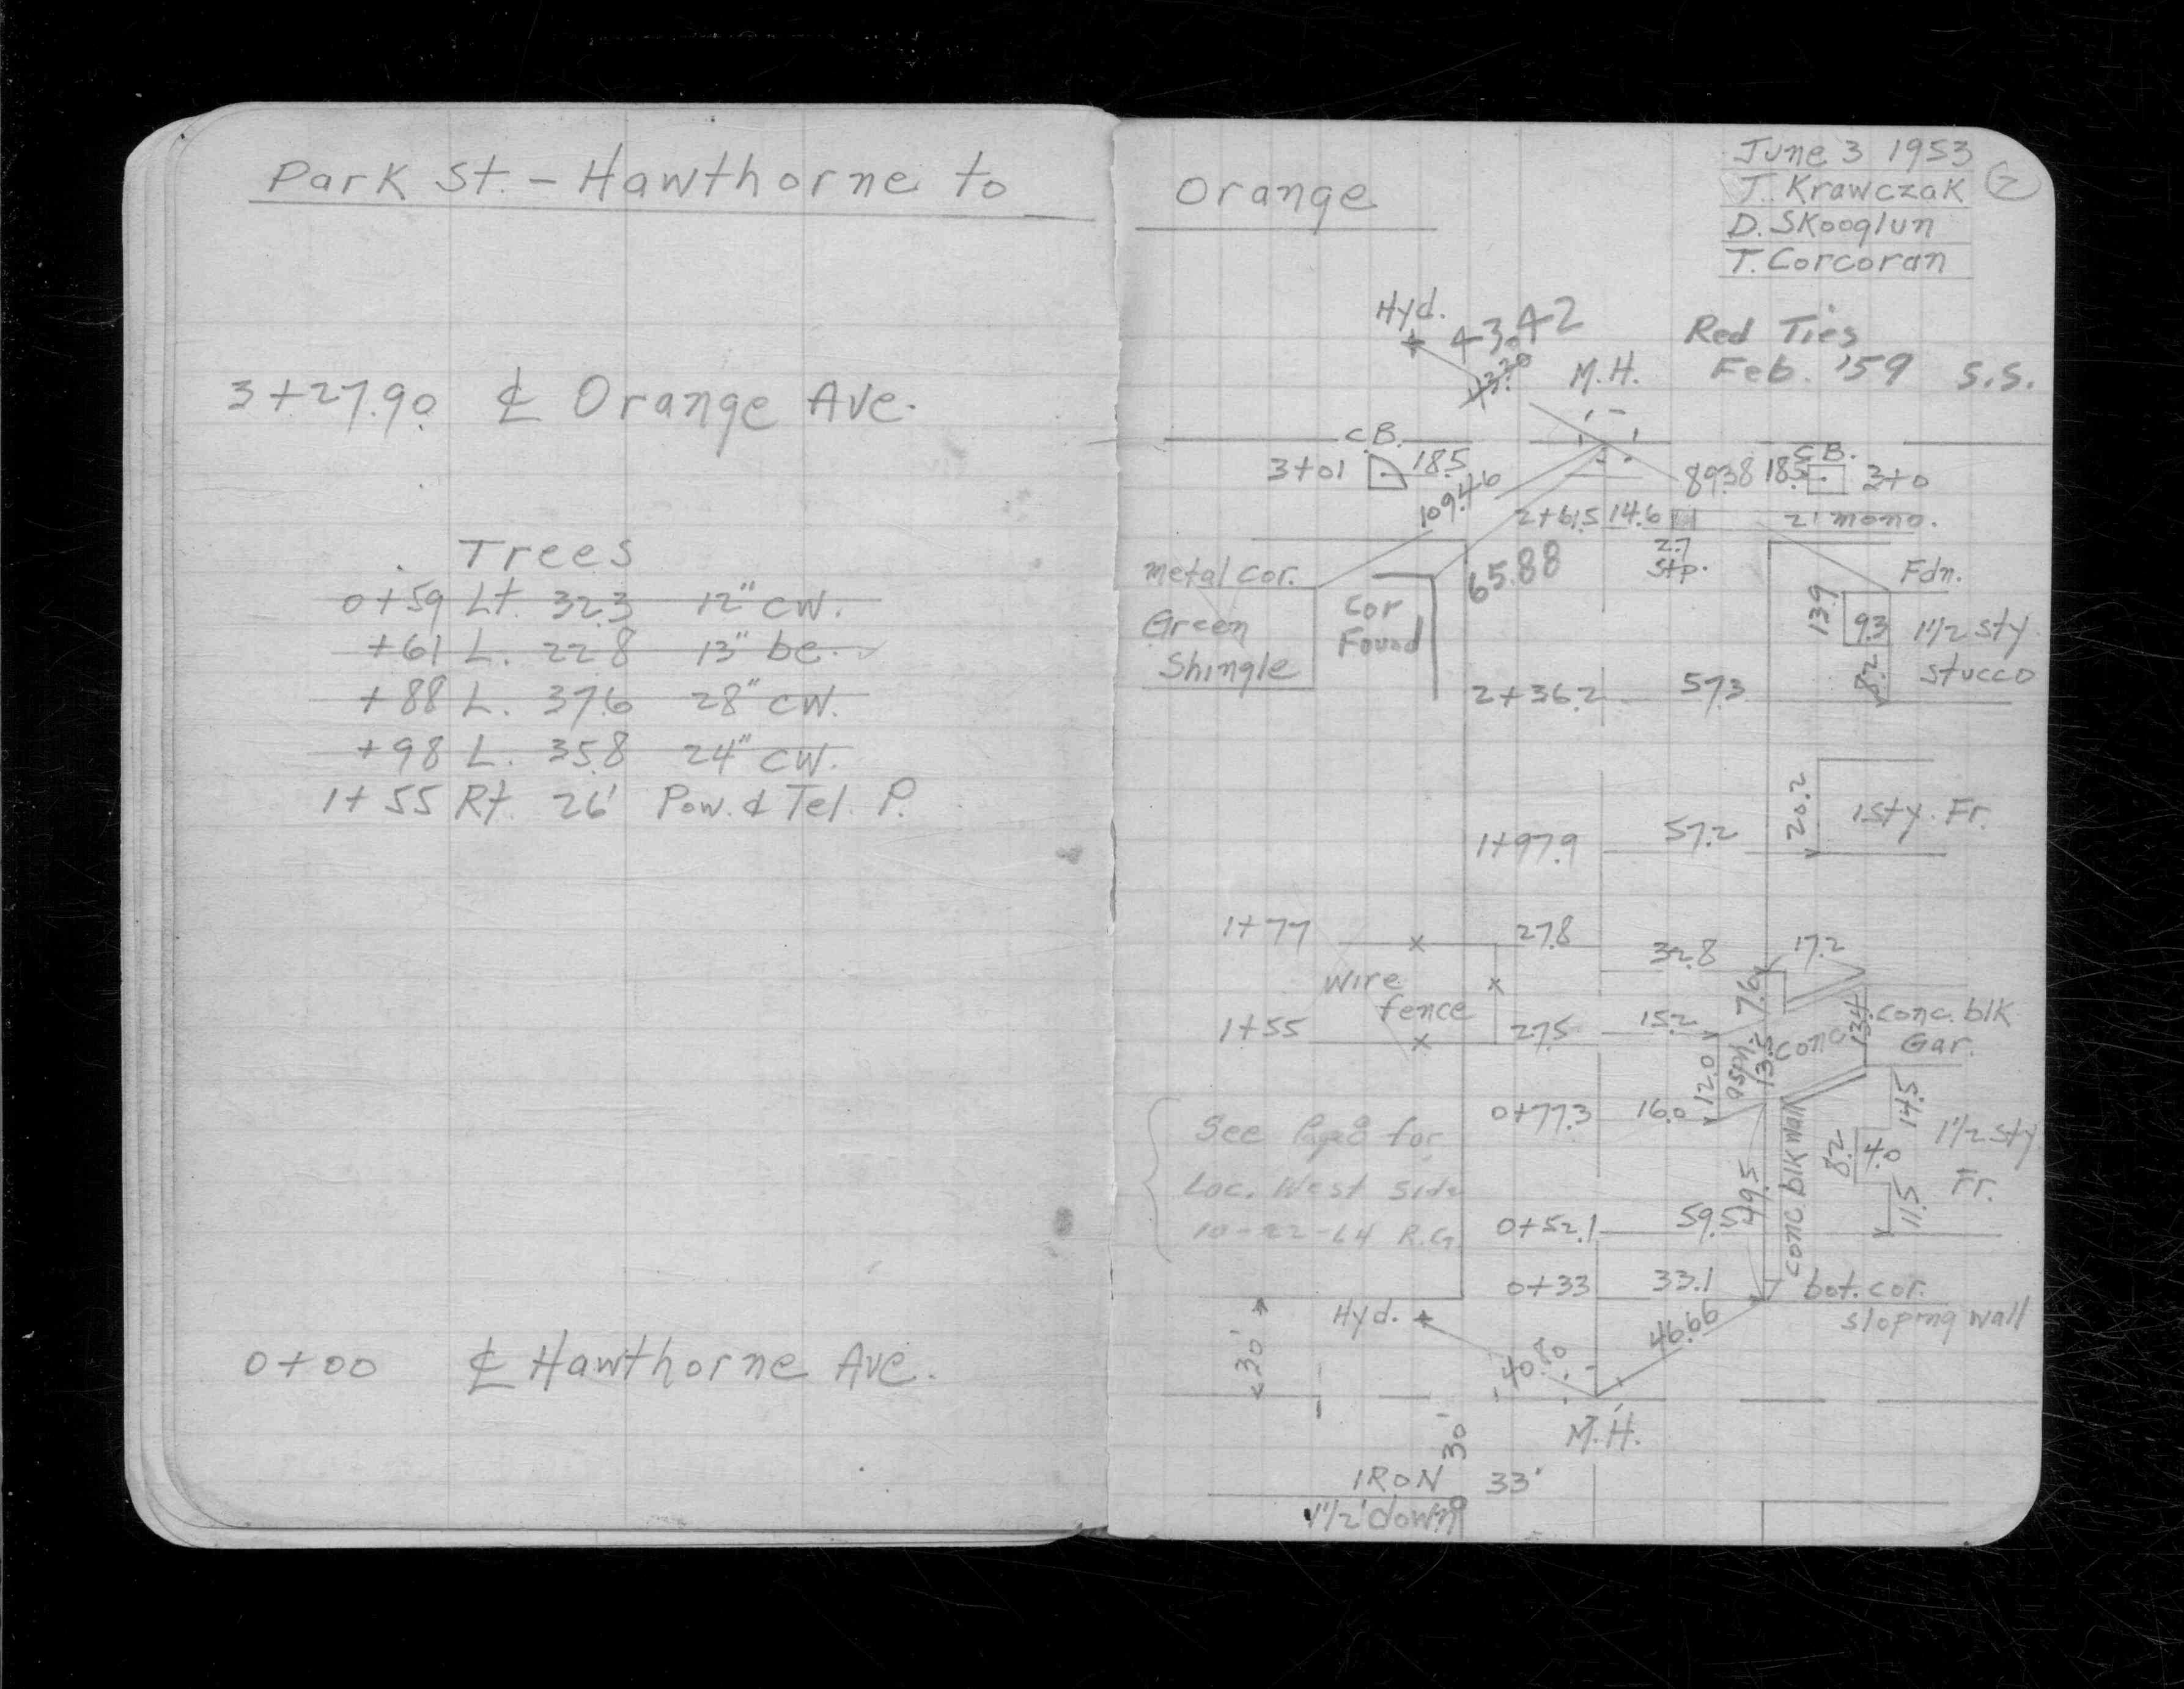 Park St. - Hawthorne to
3+27.90 ℄ Orange Ave.
Trees
0+59 Lt. 32.3 12" cw.
+61 L. 22.8 13" be.
+88 L. 37.6 28" cw.
+98 L. 35.8 24" cw.
1+55 Rt. 26' Pow. & Tel. P.
0+00 ℄ Hawthorne Ave.
Orange
June 3 1953
J. Krawczak 2
D. Skooglun
T. Corcoran
Hyd. 43.42
43.20
M.H.
Red Ties
Feb. '59 S.S.
C.B.
3+01 18.5
109.46
89.38 18.5 C.B. 3+0
2+61.5 14.6 2' mono.
2.7
Stp.
65.88
Metal cor.
Green
Shingle
Cor
Found
Fdn.
13.9
9.3 1 1/2 sty
8.2 stucco
2+36.2 57.3
20.2 1 sty. Fr.
1+97.9 57.2
1+77 27.8
32.8 17.2
wire
fence
7.6
1+55 27.5 15.2
12.0 asph. 13.5 conc 13.4
conc. blk
Gar.
0+77.3 16.0
14.5
8.2 4.0 1 1/2 sty
Fr.
11.5
conc blk wall
49.5
See Pg 8 for
Loc. West Side
10-22-64 R.G.
0+52.1 59.5
0+33 33.1 bot. cor.
sloping wall
Hyd.
30'
40.80
46.66
M.H.
30'
IRON 33'
1 1/2' down